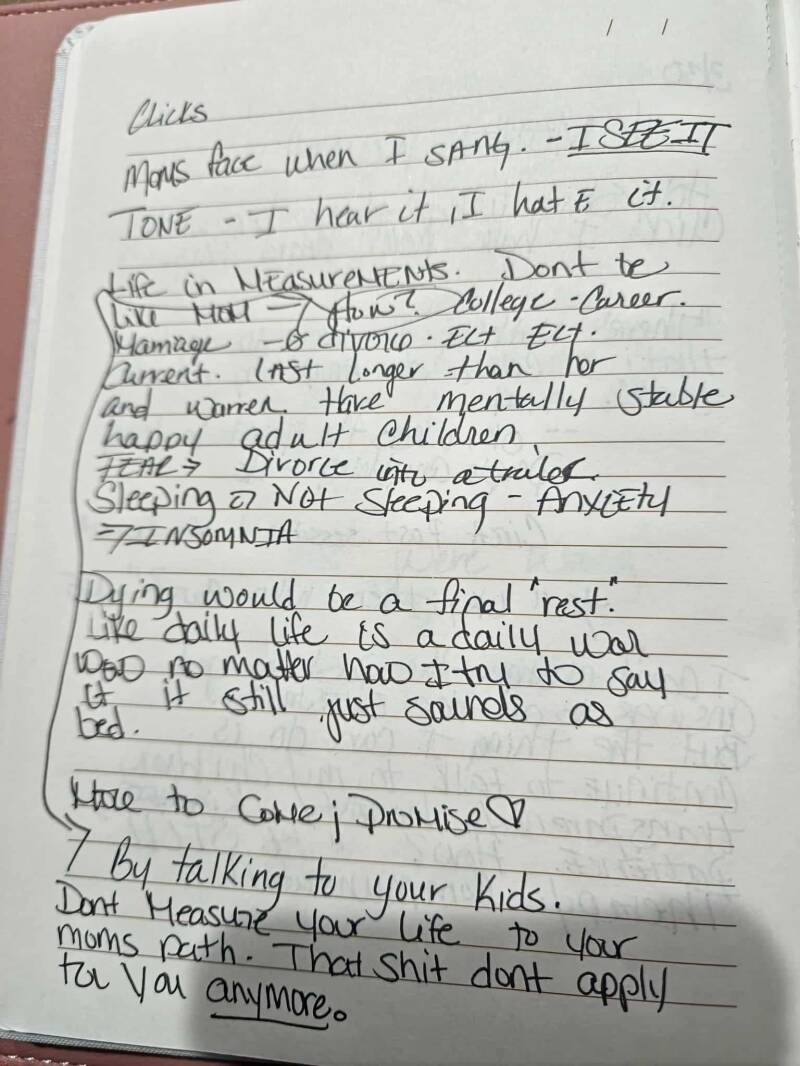 Clicks
Moms face when I SANG. - I SEE IT
TONE - I hear it, I hatE it.
Life in MEasureMENts. Dont be
like MOM → How? College - Career.
Marriage - divorce.
Current. LASt longer than her
and warren. Have mentally stable
happy adult children.
FEAR → Divorce into a trailer.
Sleeping NOt Sleeping - AnxIEty
→ INSOMNIA
Dying would be a final "rest".
Like daily life is a daily war
no matter how I try to say
it it still just sounds as
bed.
More to Come; Promise♡
→ By talking to your Kids.
Dont Measure your life to your
moms path. That shit dont apply
for You anymore.